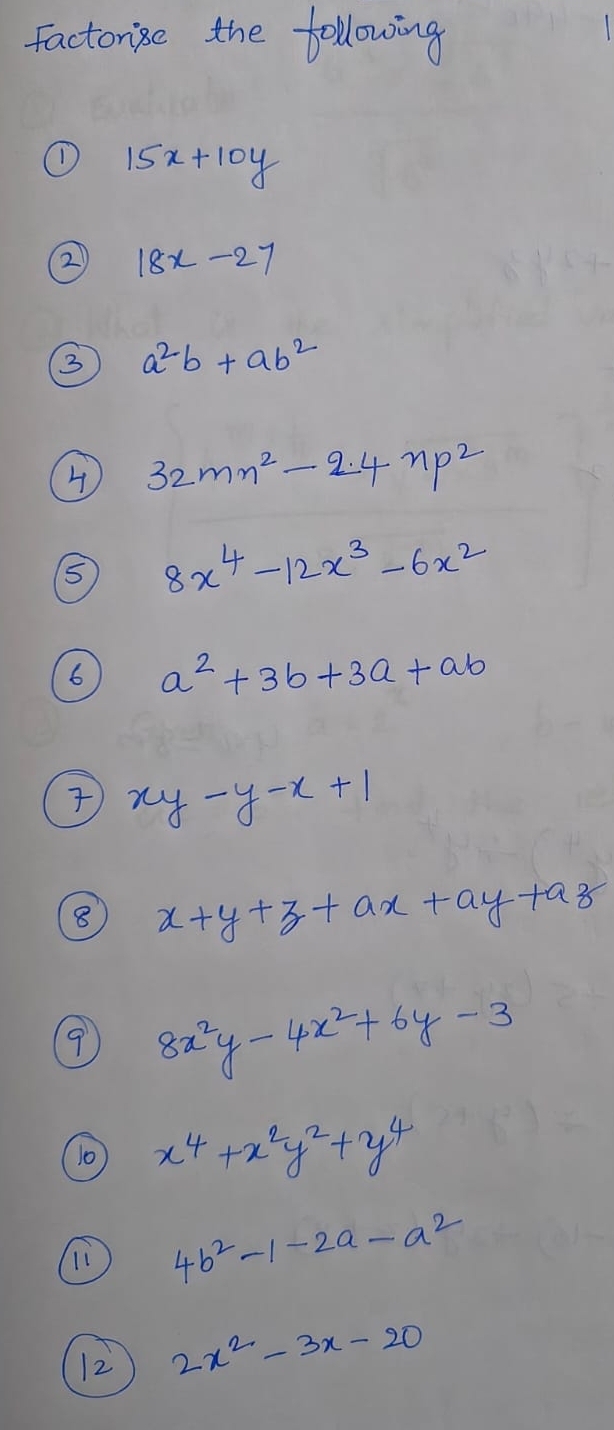 Factorise the following
① 15x+10y
② 18x -27
③ a²b + ab²
④ 32mn² - 2.4 np²
⑤ 8x⁴ -12x³ -6x²
⑥ a² +3b+3a + ab
⑦ xy -y -x +1
⑧ x+y+z+ ax +ay +az
⑨ 8x²y - 4x²+ 6y -3
⑩ x⁴ +x²y²+y⁴
⑪ 4b² -1 -2a - a²
⑫ 2x² - 3x - 20